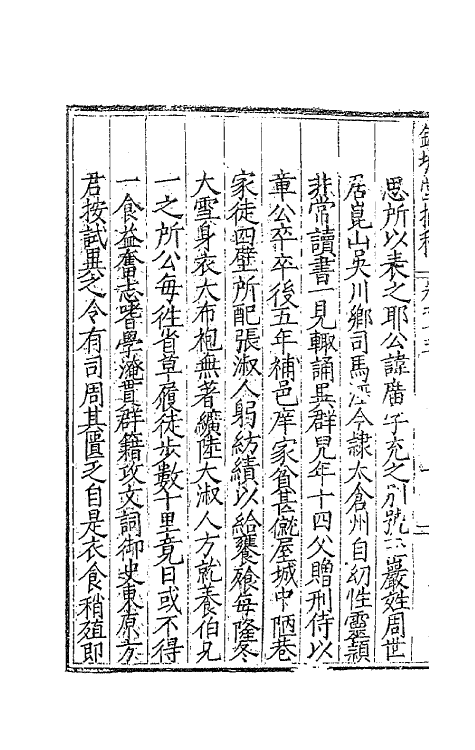 思所以表之耶公諱廣字充之別號玉巖姓周世
居崑山吳川鄉司馬涇今隸太倉州自幼性靈穎
非常讀書一見輒誦異群兒年十四父贈刑侍以
章公卒卒後五年補邑庠家貧甚僦屋城中陋巷
家徒四壁所配張淑人躬紡績以給饔飱每隆冬
大雪身衣大布袍無著纊陸大淑人方就養伯兄
一之所公每徃省草履徒步數十里竟日或不得
一食益奮志嗜學淹貫群籍攻文詞御史東原方
君按試異之令有司周其匱乏自是衣食稍殖即